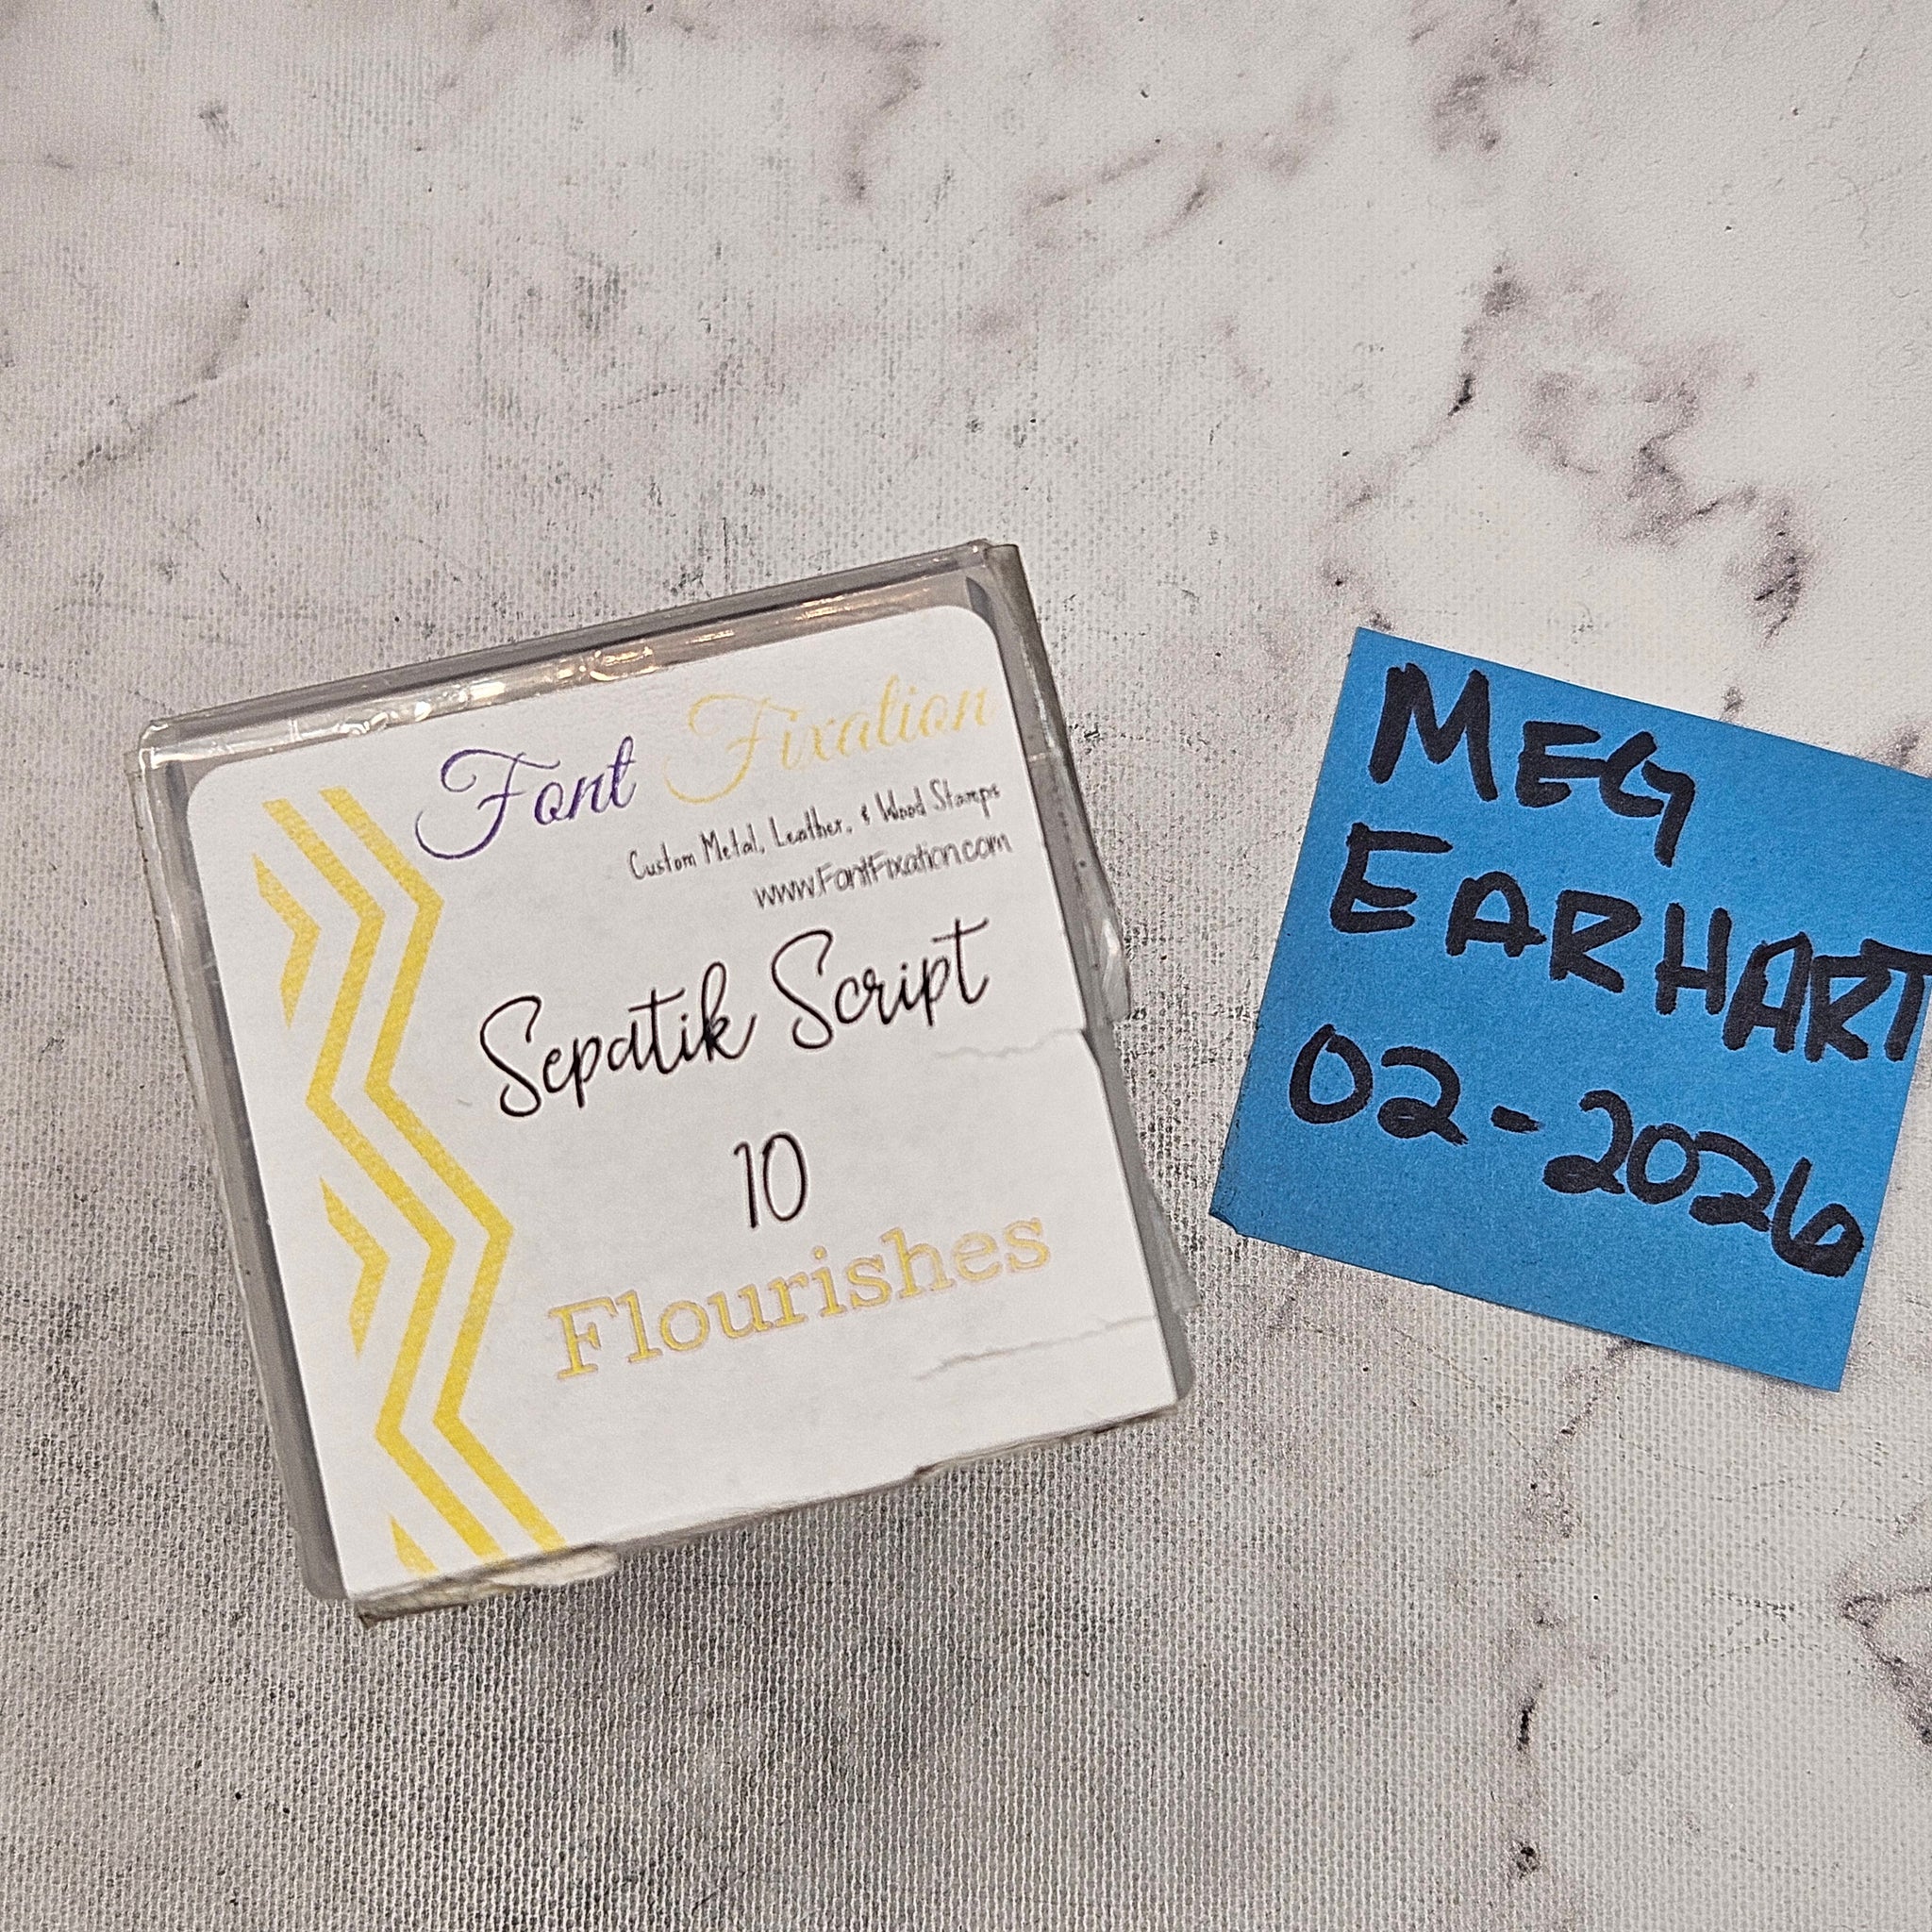 Font Fixation
Custom Metal, Leather, & Wood Stamps
www.FontFixation.com
Sepatik Script
10
Flourishes
MEG
EARHART
02-2026